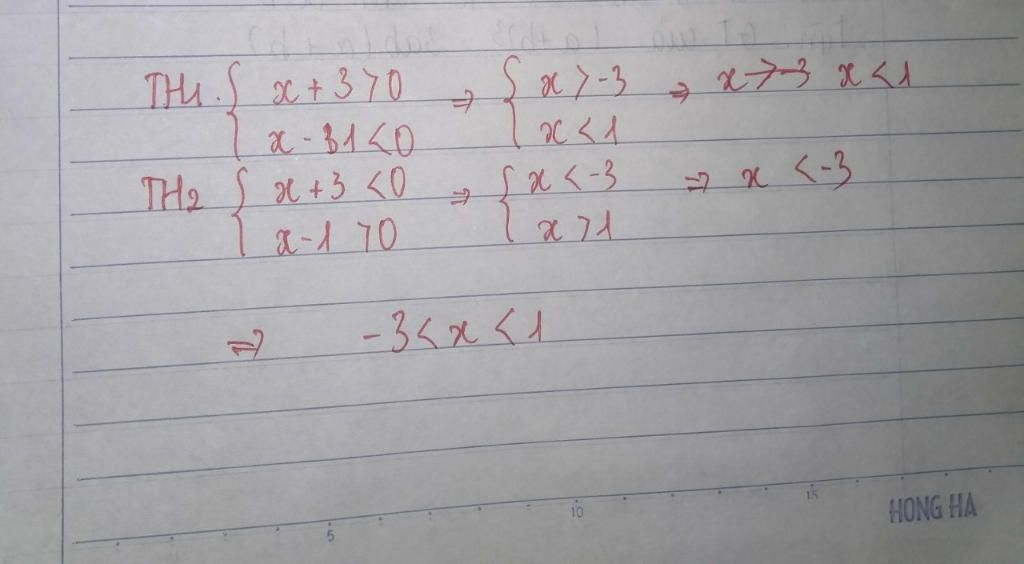 TH1. { x + 3 > 0 ⇒ { x > -3 ⇒ x > -3 x < 1
x - 1 < 0 x < 1
TH2 { x + 3 < 0 ⇒ { x < -3 ⇒ x < -3
x - 1 > 0 x > 1
⇒ -3 < x < 1
5 10 15
HONG HA